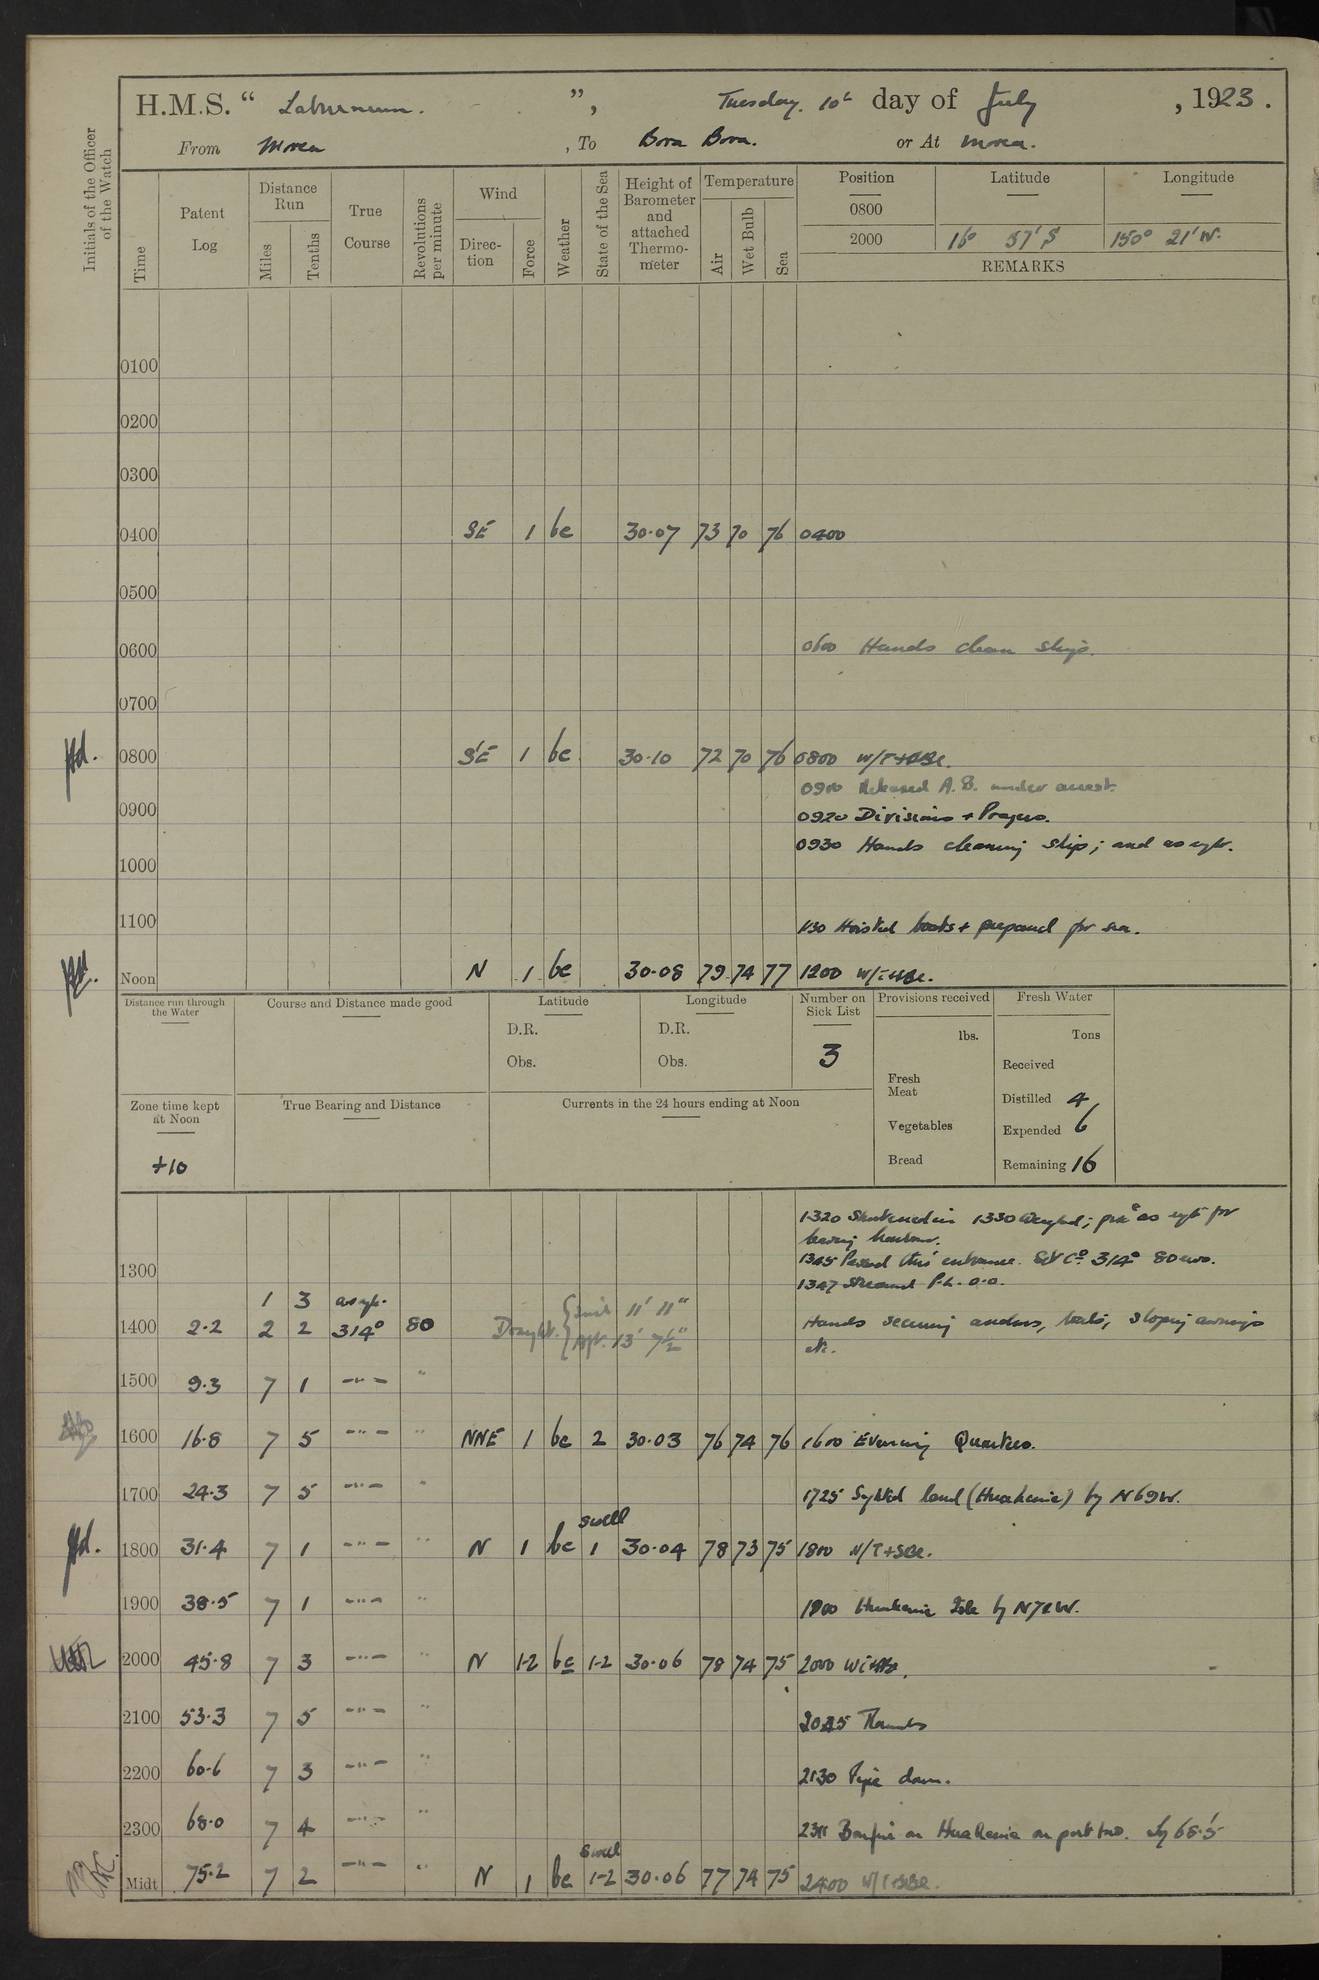 H.M.S. “ Laburnum. ”, Tuesday. 10th day of July , 1923 .
From Morea , To Bora Bora. or At Morea.
Initials of the Officer of the Watch
Time
Patent Log
Distance Run
Miles
Tenths
True Course
Revolutions per minute
Wind
Direc-tion
Force
Weather
State of the Sea
Height of Barometer and attached Thermo-meter
Temperature
Air
Wet Bulb
Sea
Position Latitude Longitude
0800
2000 16° 57' S 150° 21' W.
REMARKS
0100
0200
0300
0400 SE 1 bc 30.07 73 70 76 0400
0500
0600 0600 Hands clean ship.
0700
0800 SE 1 bc 30.10 72 70 76 0800
0900 Released A.B. under arrest.
0900 0920 Divisions + Prayers.
0930 Hands cleaning ship; and as reqte.
1000
1100 1130 Hoisted boats + prepared for sea.
Noon N 1 bc 30.08 79 74 77 1200
Distance run through the Water
Course and Distance made good
Latitude
D.R.
Obs.
Longitude
D.R.
Obs.
Number on Sick List
3
Provisions received
lbs.
Fresh Meat
Vegetables
Bread
Fresh Water
Tons
Received
Distilled 4
Expended 6
Remaining 16
Zone time kept at Noon
+10
True Bearing and Distance
Currents in the 24 hours ending at Noon
1320 Shortened in 1330 Weighed; as reqte for
leaving harbour.
1345 Passed thro' entrance. Set Co. 314° 80 revs.
1300 1347 Streamed P.L. 0.0.
1 3 as reqte. Draught. 11' 11"
1400 2.2 2 2 314° 80 13' 7½" Hands securing anchors, boats, sloping awnings
etc.
1500 9.3 7 1 —"— "
1600 16.8 7 5 —"— " NNE 1 bc 2 30.03 76 74 76 1600 Evening Quarters.
1700 24.3 7 5 —"— " 1725 Sighted land (Huaheine) by N69W.
swell
1800 31.4 7 1 —"— " N 1 bc 1 30.04 78 73 75 1800
1900 38.5 7 1 —"— " 1900 Huaheine Isle by N72W.
2000 45.8 7 3 —"— " N 1-2 bc 1-2 30.06 78 74 75 2000
2100 53.3 7 5 —"— " 2045 Rounds
2200 60.6 7 3 —"— " 2130 Pipe down.
2300 68.0 7 4 —"— " 2311 Bonfire on Huaheine on port bow. 68.5
swell
Midt 75.2 7 2 —"— " N 1 bc 1-2 30.06 77 74 75 2400